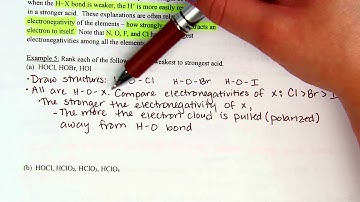 when the H–X bond is weaker, the H⁺ is more easily
a stronger acid. These explanations are often
electronegativity of the elements – how
electron to itself. Note that N, O, F, and Cl
electronegativities among all the elements
Example 5: Rank each of weakest to strongest acid.
(a) HOCl, HOBr, HOI
• Draw structures: O - Cl H-O-Br H-O-I
• All are H-O-X. Compare electronegativities of X: Cl > Br > I
The stronger the electronegativity of X,
- The more the electron cloud is pulled (polarized)
away from H-O bond
(b) HOCl, HClO₂, HClO₃, HClO₄